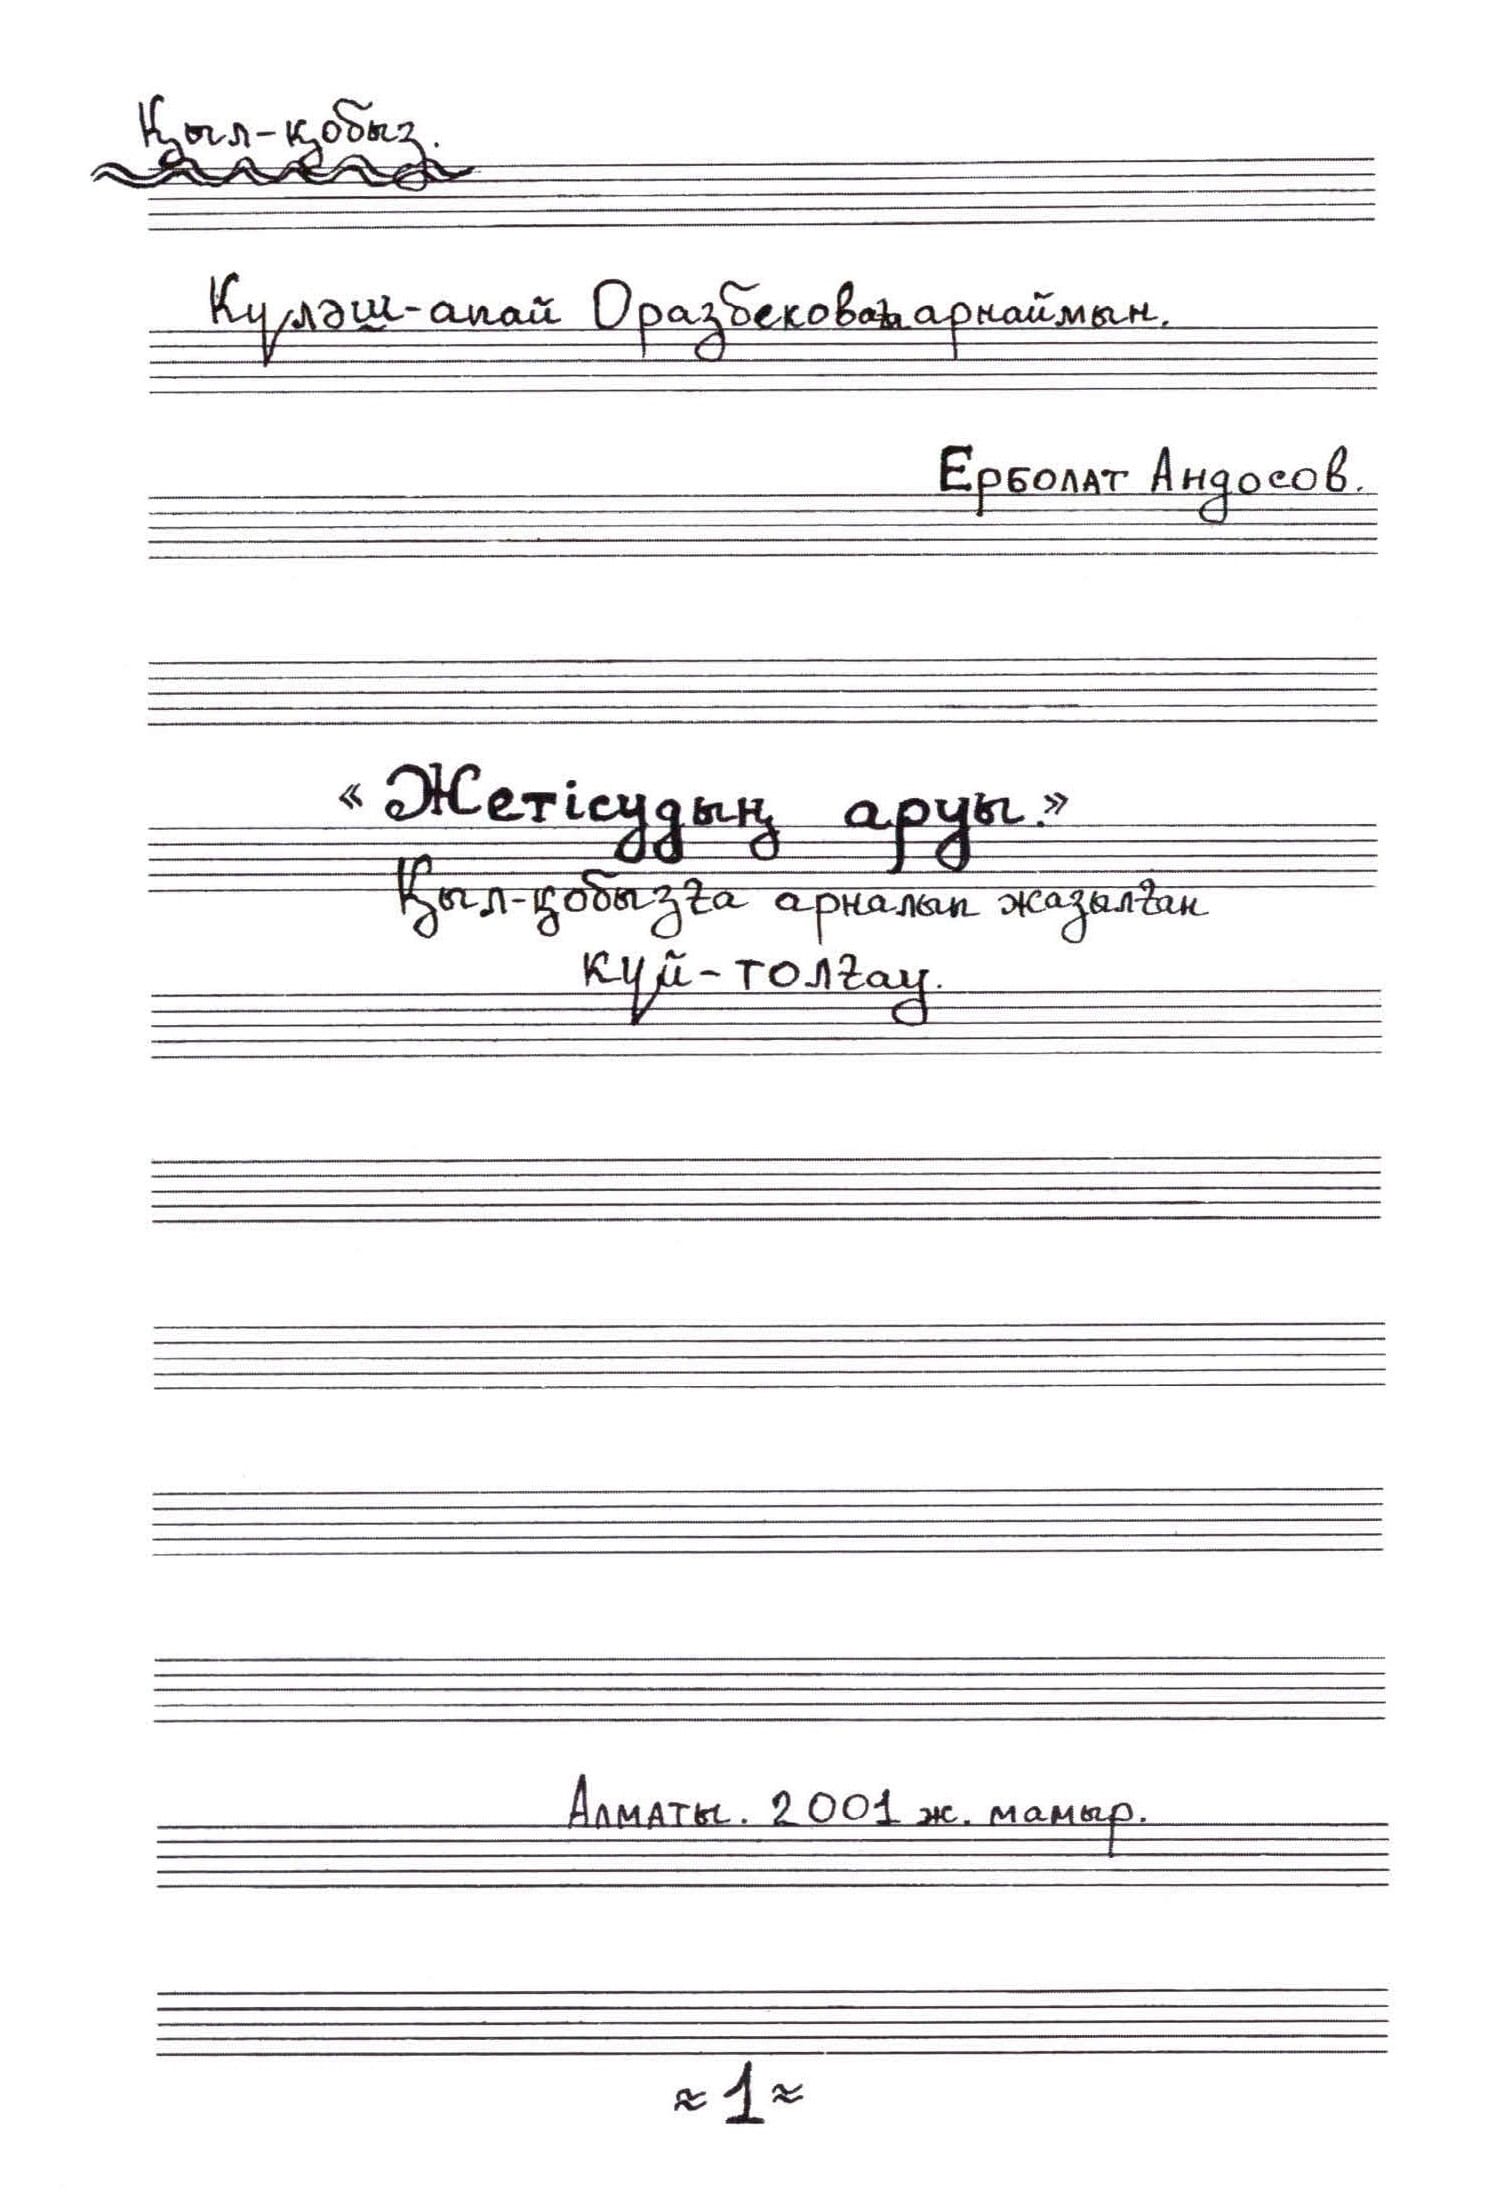 Қыл-қобыз.
Күләш-апай Оразбековаға арнаймын.
Ерболат Андосов.
«Жетісудың аруы.»
Қыл-қобызға арналып жазылған
күй-толғау.
Алматы. 2001 ж. мамыр.
≈1≈